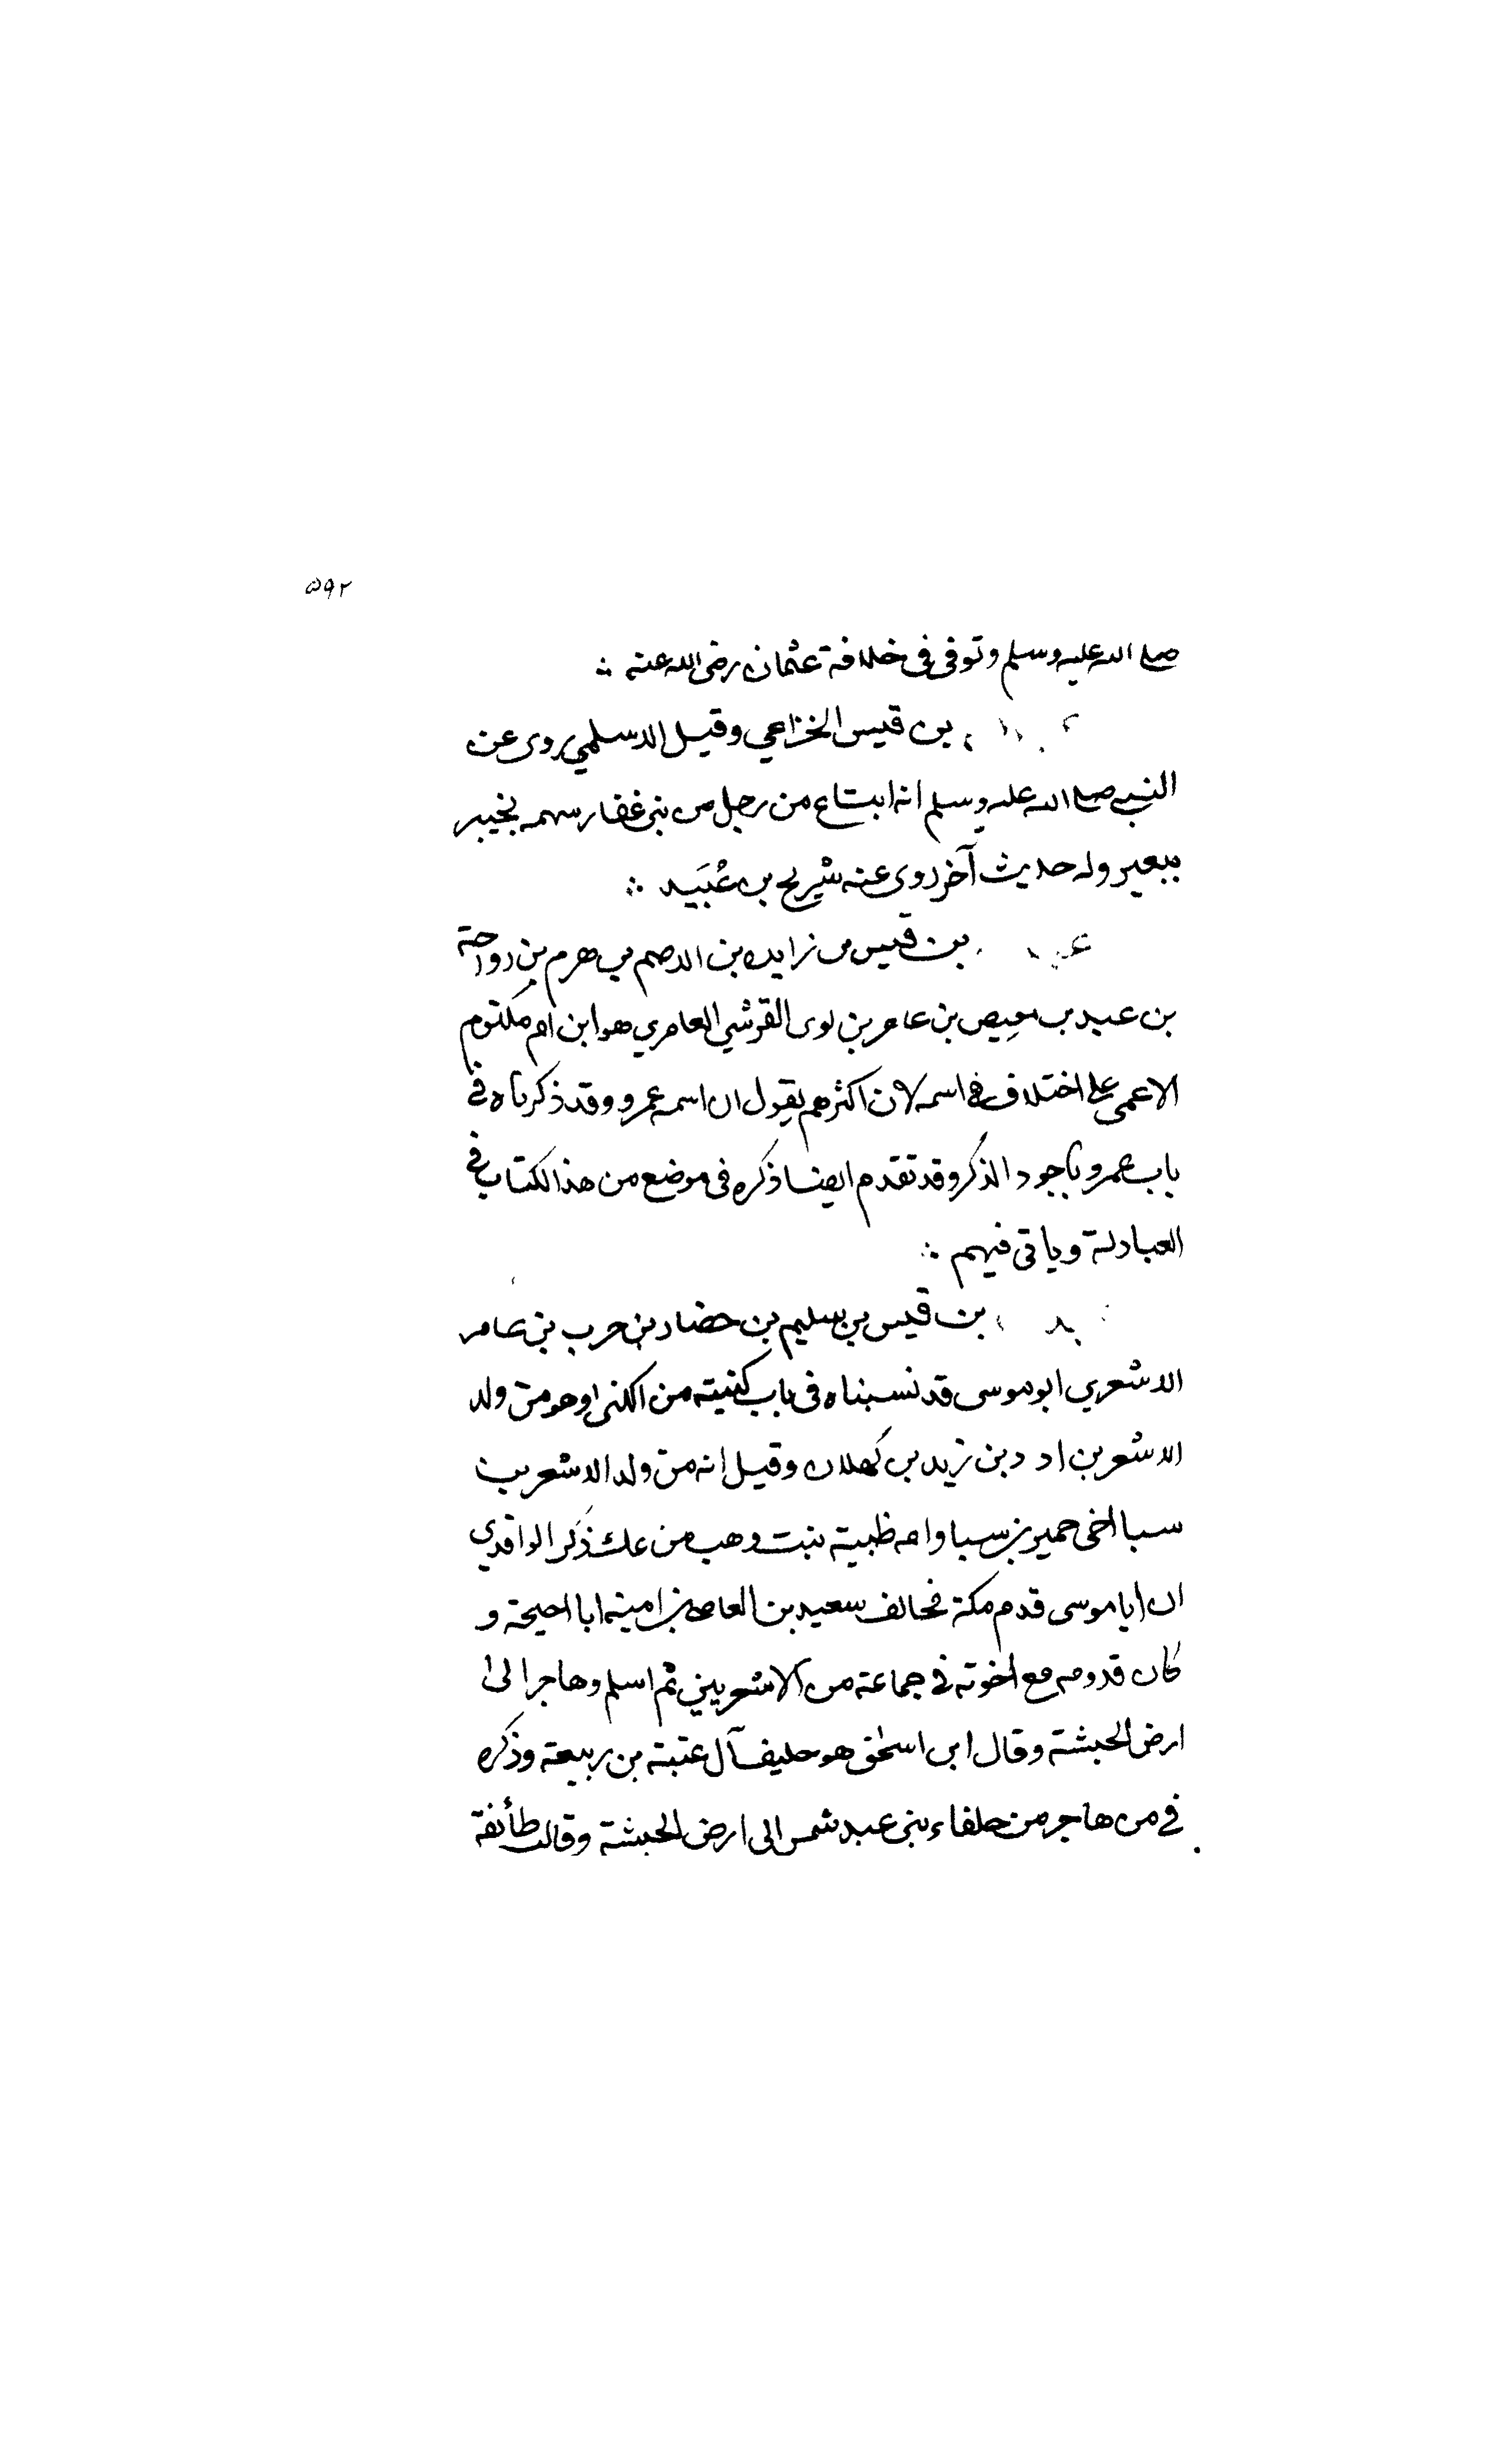 ٥٩٢
صلى الله عليه وسلم وتوفى فى خلافة عثمان رضى الله عنه ؞
بن قيس الخزاعي وقيل الاسلمي روى عن
النبي صلى الله عليه وسلم انه ابتاع من رجل من بنى غفار سهمه بخيبر
ببعير وله حديث آخر روى عنه شريح بن عُبَيد ؞
بن قيس بن زايده بن الاصم بن هرم بن رواحة
بن عبد بن معيص بن عامر بن لوى القرشي العامري هو ابن ام مكتوم
الاعمى على اختلاف فى اسمه لان اكثرهم يقول ان اسمه عمرو وقد ذكرناه فى
باب عمرو باجود الذكر وقد تقدم ايضا ذكره فى موضع من هذا الكتاب فى
العبادلة وياتى فيهم ؞
بن قيس بن سليم بن حضار بن حرب بن عامر
الاشعري ابو موسى قد نسبناه فى باب كنيته من الكنى وهو من ولد
الاشعر بن ادد بن زيد بن كهلان وقيل انه من ولد الاشعر بن
سبا اخى حمير بن سبا وامه ظبية بنت وهب من عك ذكر الواقدي
ان ابا موسى قدم مكة فحالف سعيد بن العاص بن امية ابا احيحة و
كان قدومه مع اخوته فى جماعة من الاشعريين ثم اسلم وهاجر الى
ارض الحبشة وقال ابن اسحٰق هو حليف آل عتبة بن ربيعة وذكره
فى من هاجر من حلفاء بنى عبد شمس الى ارض الحبشة وقالت طائفة